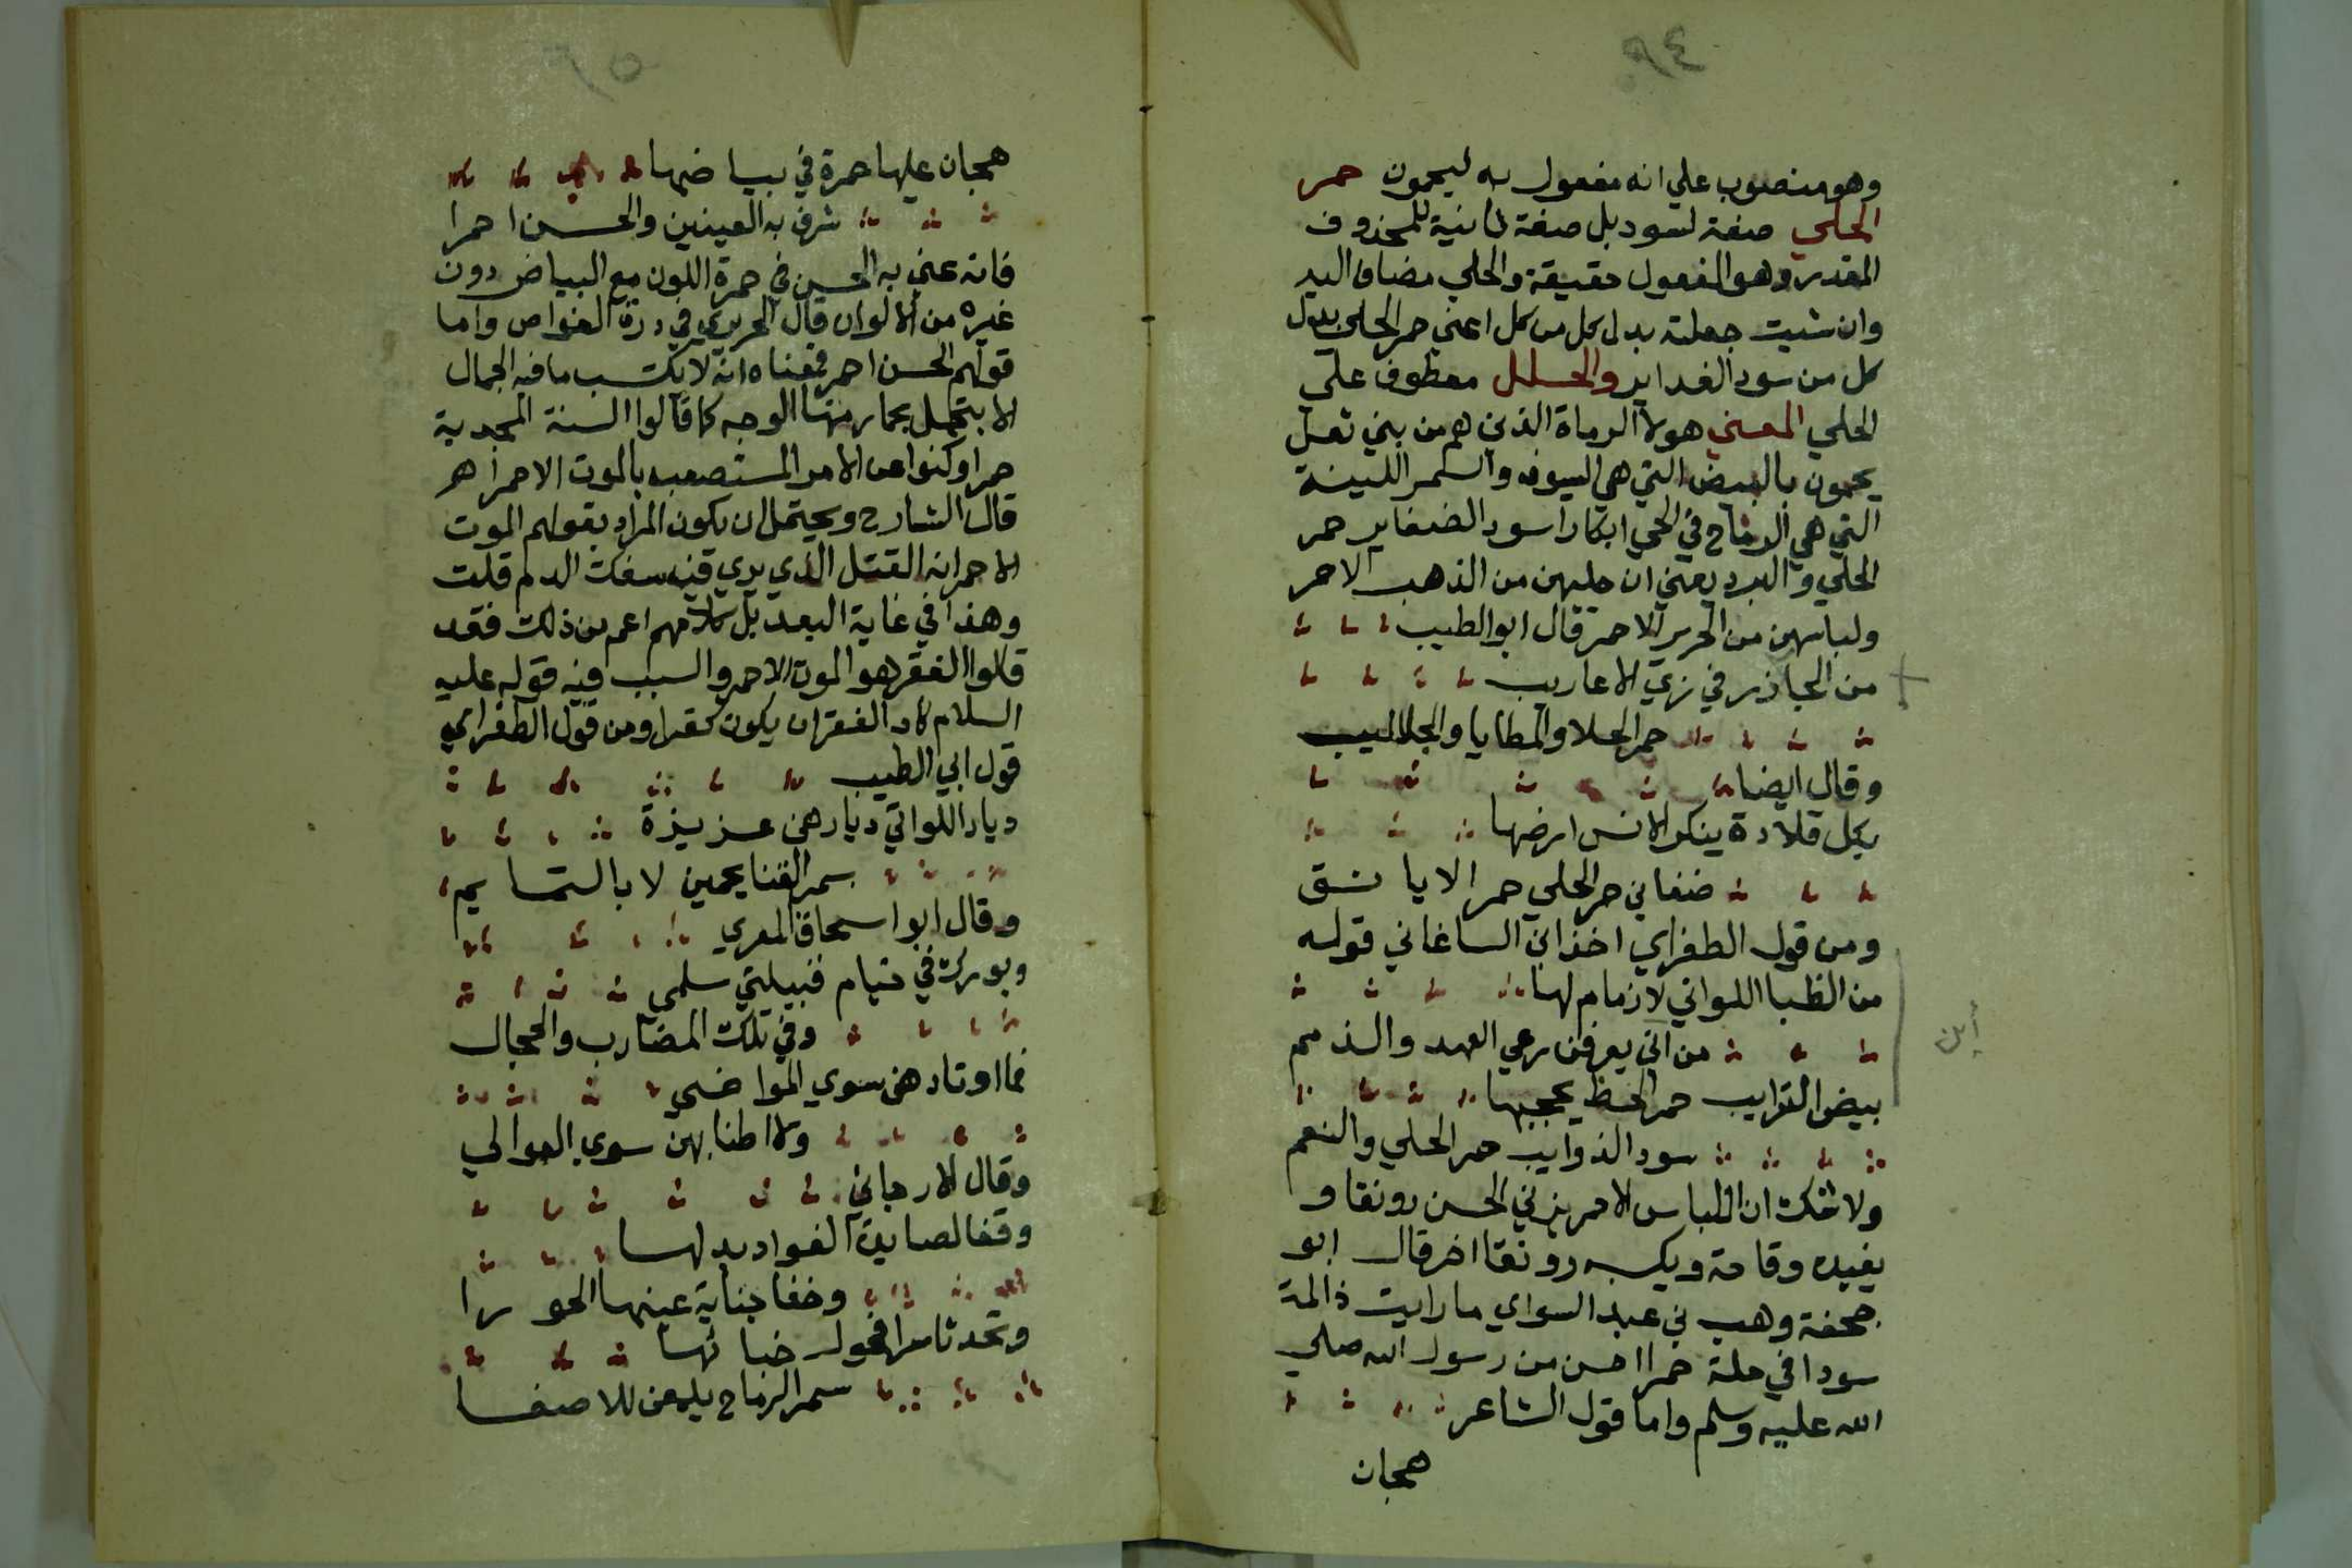 ٩٤
وهو منصوب علي انه مفعول به ليحمون حمر
الحلي صفة لسود بل صفة ثانية للمحذوف
المقدر وهو المفعول حقيقة والحلي مضاف اليه
وان شيت جعلته بدل كل من كل اعني حمر الحلي بدل
كل من سود الغداير والحلل معطوف علي
الحلي المعني هولا الرماة الذين هم من بني ثعل
يحمون بالبيض التي هي السيوف والسمر اللينة
التي هي الرماح في الحي ابكارا سود الضفاير حمر
الحلي والبرد يعني ان حليهن من الذهب الاحمر
ولباسهن من الحرير الاحمر قال ابو الطيب
من الجاذر في زي الاعاريب
حمر الحلا والمطايا والجلاليب
وقال ايضا
بكل فلاة ينكر الانس ارضها
ضغاني حمر الحلي حمر الايانق
ومن قول الطغراي اخذ الساغاني قوله
من الظبا اللواتي لا زمام لها
من اني يعرفن رعي العهد والذمم
بيض الترايب حمر الحظ يحجبها
سود الذوايب حمر الحلي والنعم
ولا شك ان اللباس الاحمر يزني الحسن رونقا و
يفيده وقاحة ويكسبه رونقا اخر قال ابو
جحفة وهب بن عبد السواي ما رايت ذا لمة
سودا في حلة حمرا احسن من رسول الله صلي
الله عليه وسلم واما قول الشاعر
هجان
أين
هجان عليها حمرة في بياضها
شرق به العينين والحسن احمرا
فانه عني به الحسن في حمرة اللون مع البياض دون
غيره من الالوان قال الحريري في درة الغواص واما
قولهم الحسن احمر فمعناه انه لا يكتسب ما فيه الجمال
الا بتحمل يحمار منها الوجه كما قالوا السنة المجدبة
حمرا وكنوا عن الامر المستصعب بالموت الاحمر اهـ
قال الشارح ويحتمل ان يكون المراد بقولهم الموت
الاحمر انه القتل الذي يري فيه سفك الدم قلت
وهذا في غاية البعد بل كلامهم اعم من ذلك فقد
قالوا الفقر هو الموت الاحمر والسبب فيه قوله عليه
السلام كاد الفقر ان يكون كفرا ومن قول الطغراي
قول ابي الطيب
ديار اللواتي ديارهن عزيزة
بسمر القنا يحمين لا بالتمايم
وقال ابو اسحاق المعري
وبورك في خيام قبيلتي سلمي
وفي تلك المضارب والحجال
فما اوتادهن سوي المواضي
ولا اطنابهن سوي العوالي
وقال الارجاني
وقفا لصايدة الفواد بدلها
وخفا جناية عينها الحورا
وتحدثا سرا فحول خبائها
سمر الرماح يلحن للاصغا